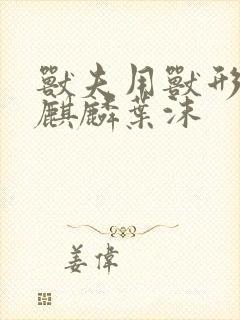 獸夫用獸形
麒麟葉沫
姜偉